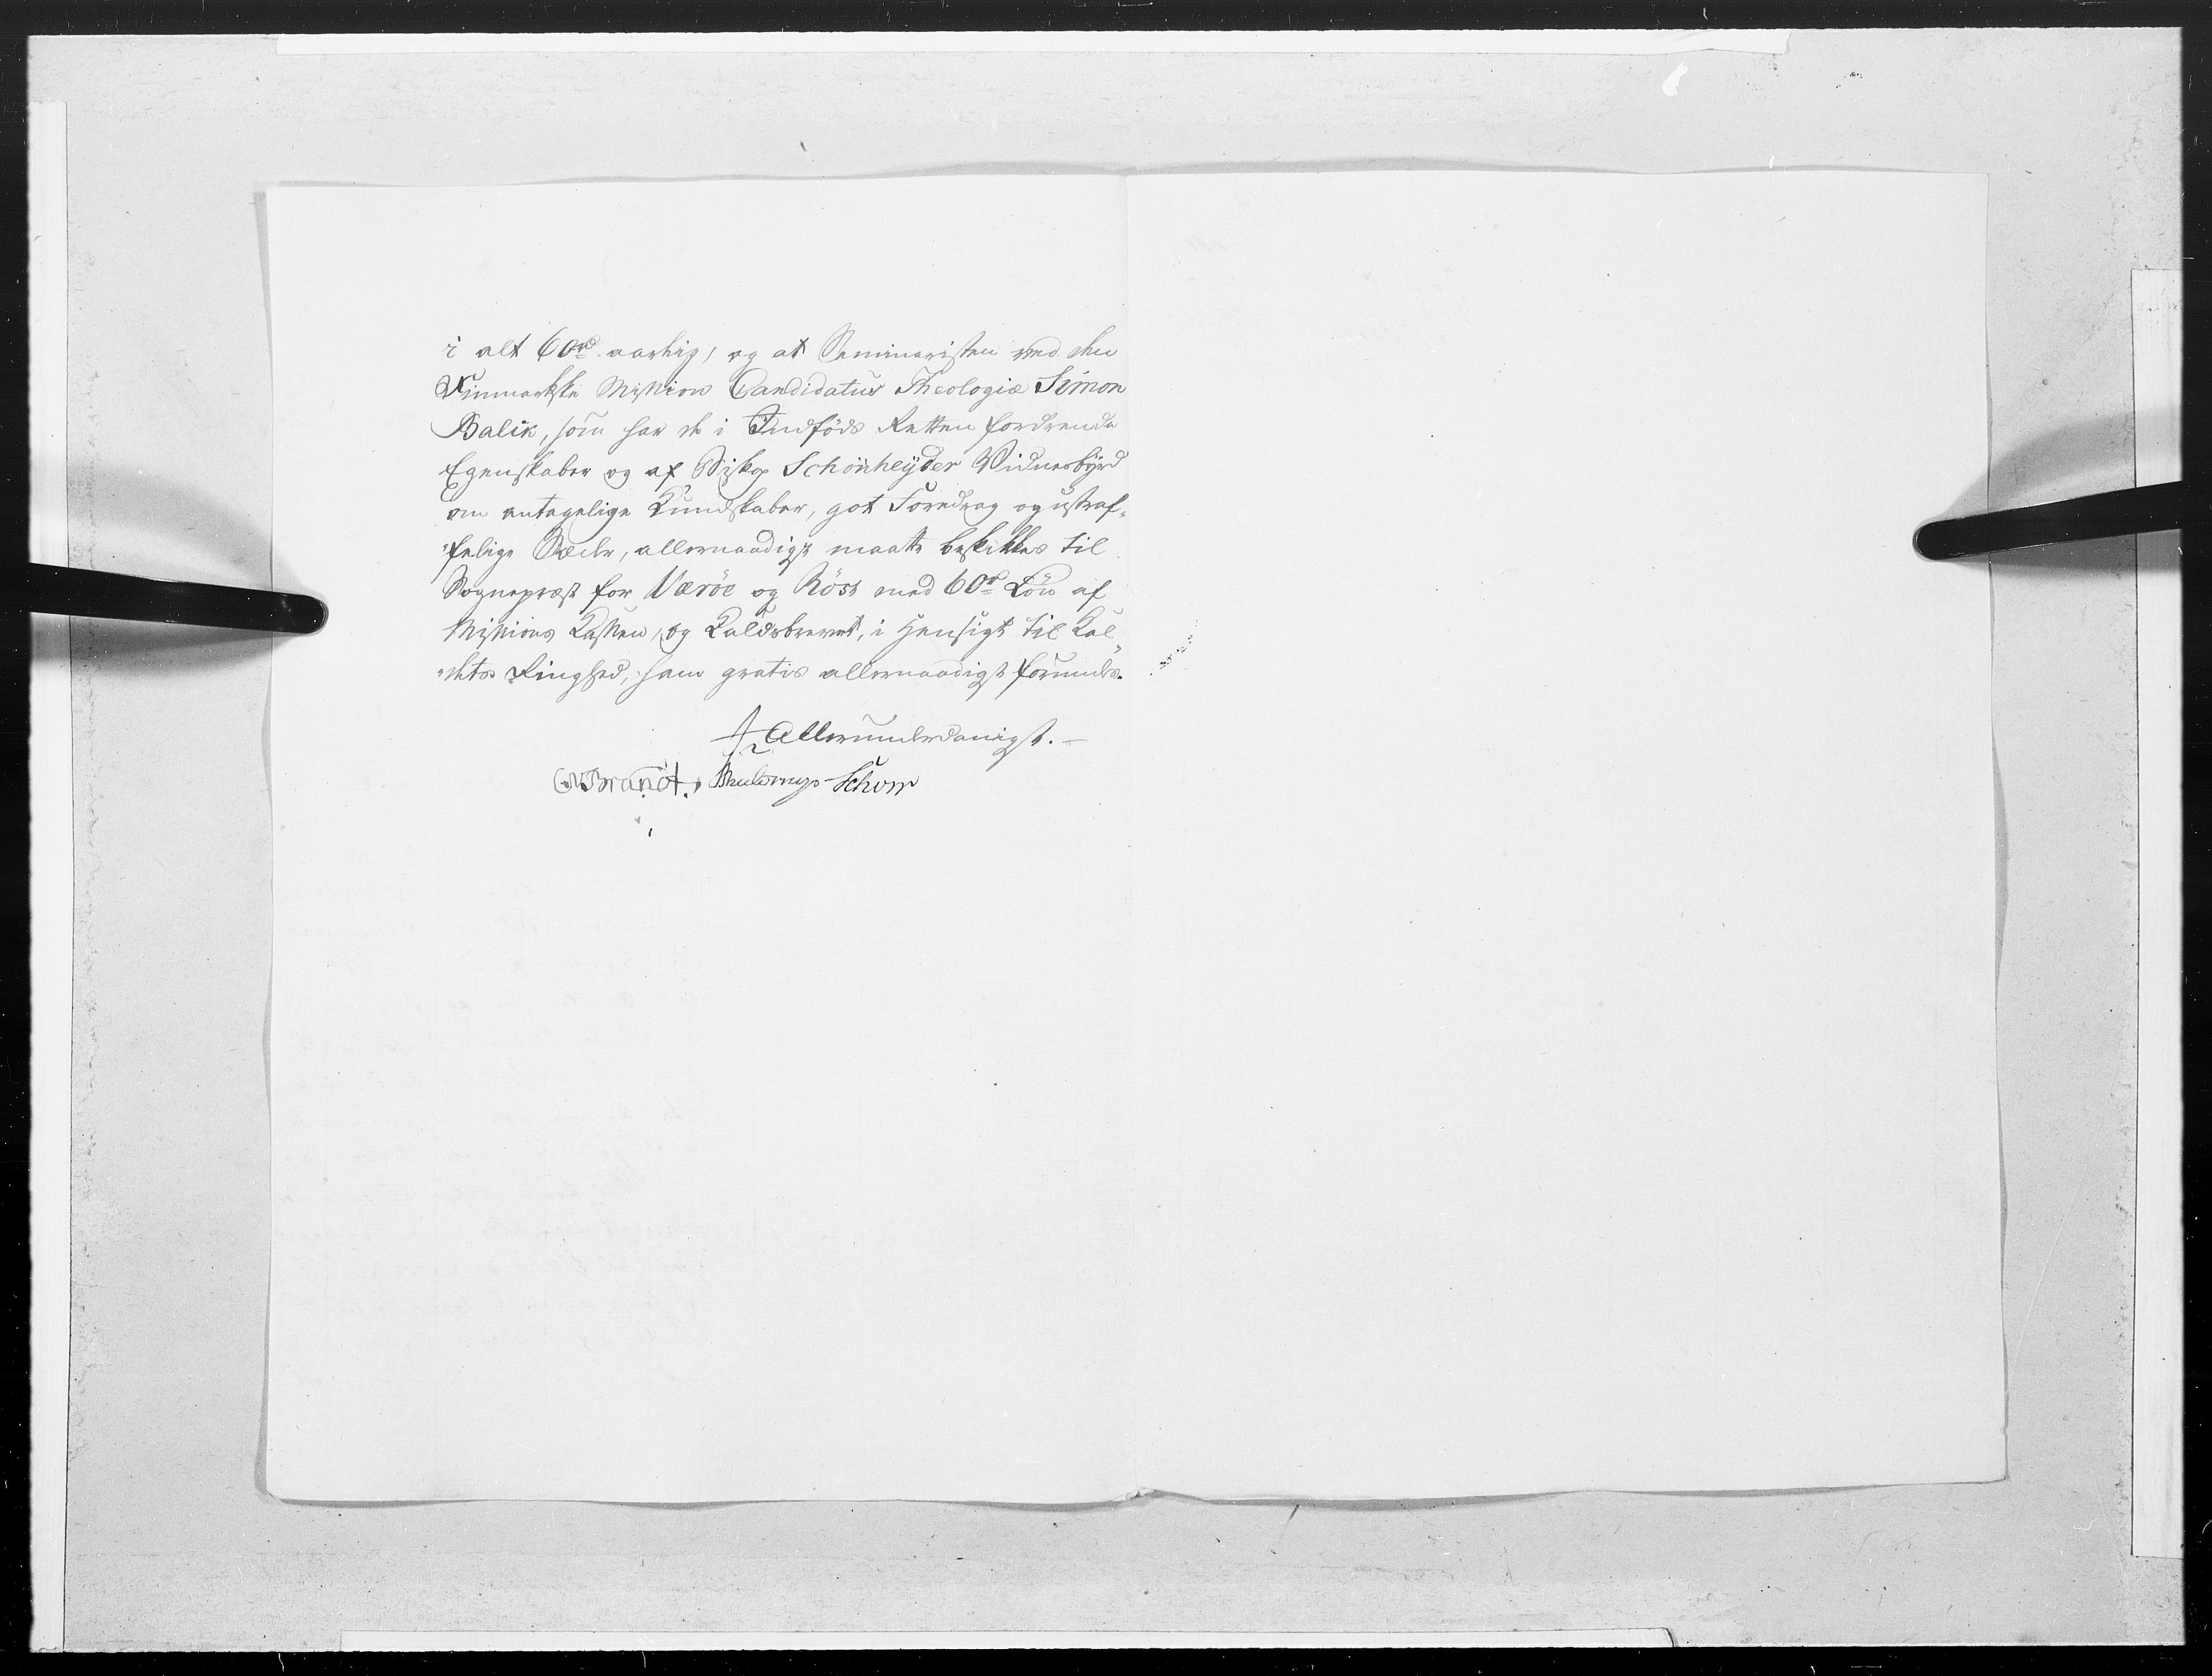 i alt 60rd. aarlig, og at Seminaristen ved den
Finmarkske Mission Candidatus Theologiæ Simon
Balik, som har de i Indføds Retten fordrende
Egenskaber og af Biskop Schönheyder Vidnesbyrd
om antagelige Kundskaber, got Foredrag og ustraf-
felige Sæder, allernaadigst maatte beskikkes til
Sognepræst forVæröe og Röst med 60rd Løn af
Missions Kassen, og Kaldsbrevet, i Hensigt til Kal-
dets Ringhed, ham gratis allernaadigst forundes.
Allerunderdanigst.
Brandt. Schow